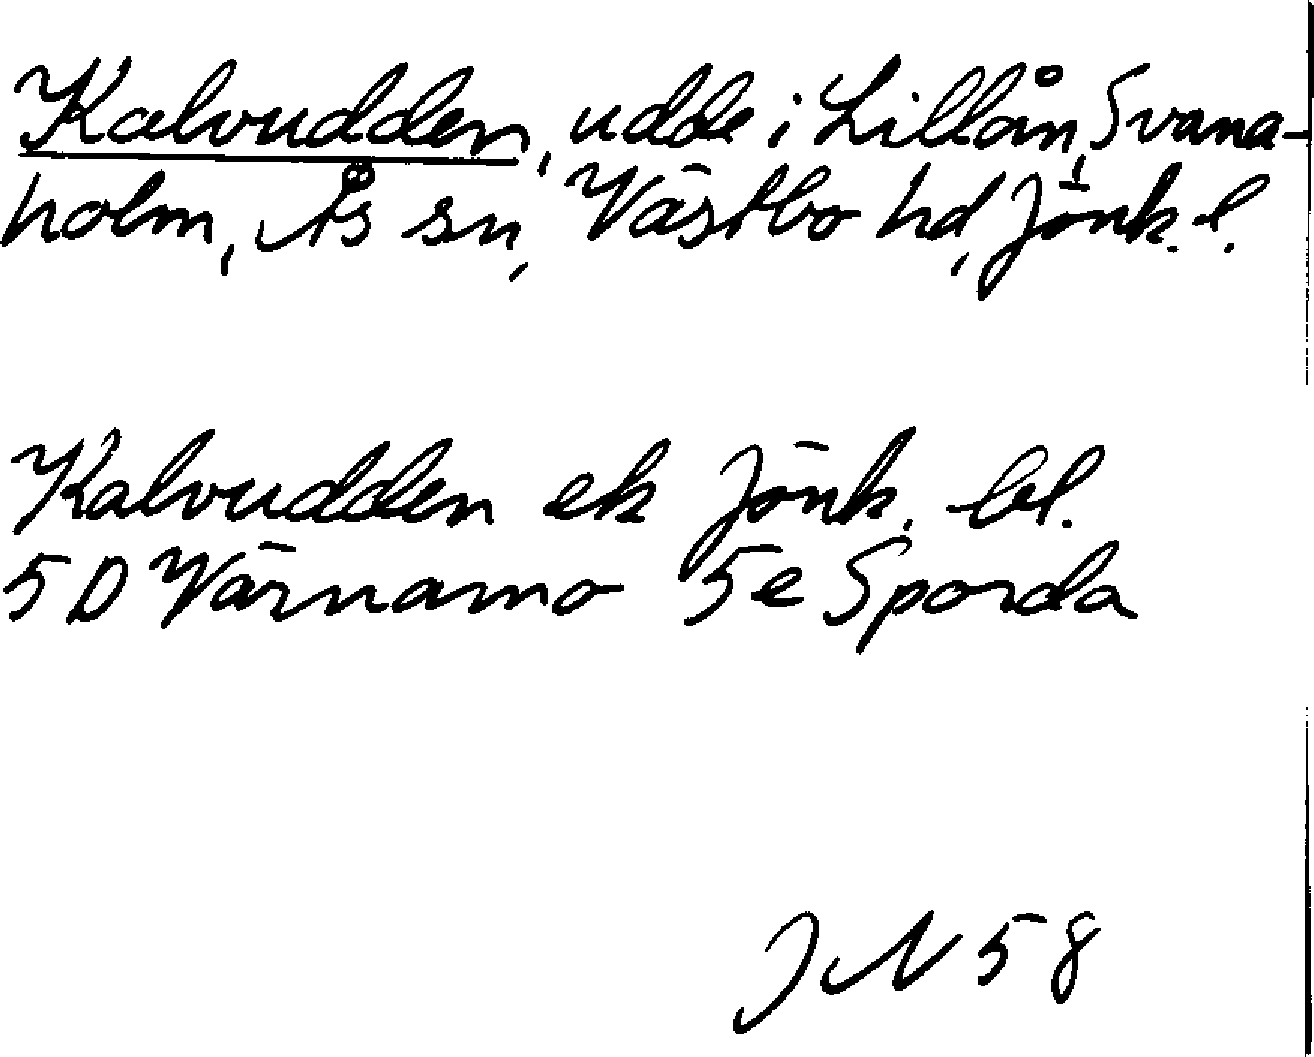 Kalvudden, udde i Lillån, Svana-
holm, Ås sn, Västbo hd, Jönk. l.
Kalvudden ek Jönk. bl.
5D Värnamo 5e Sporda
JN 58